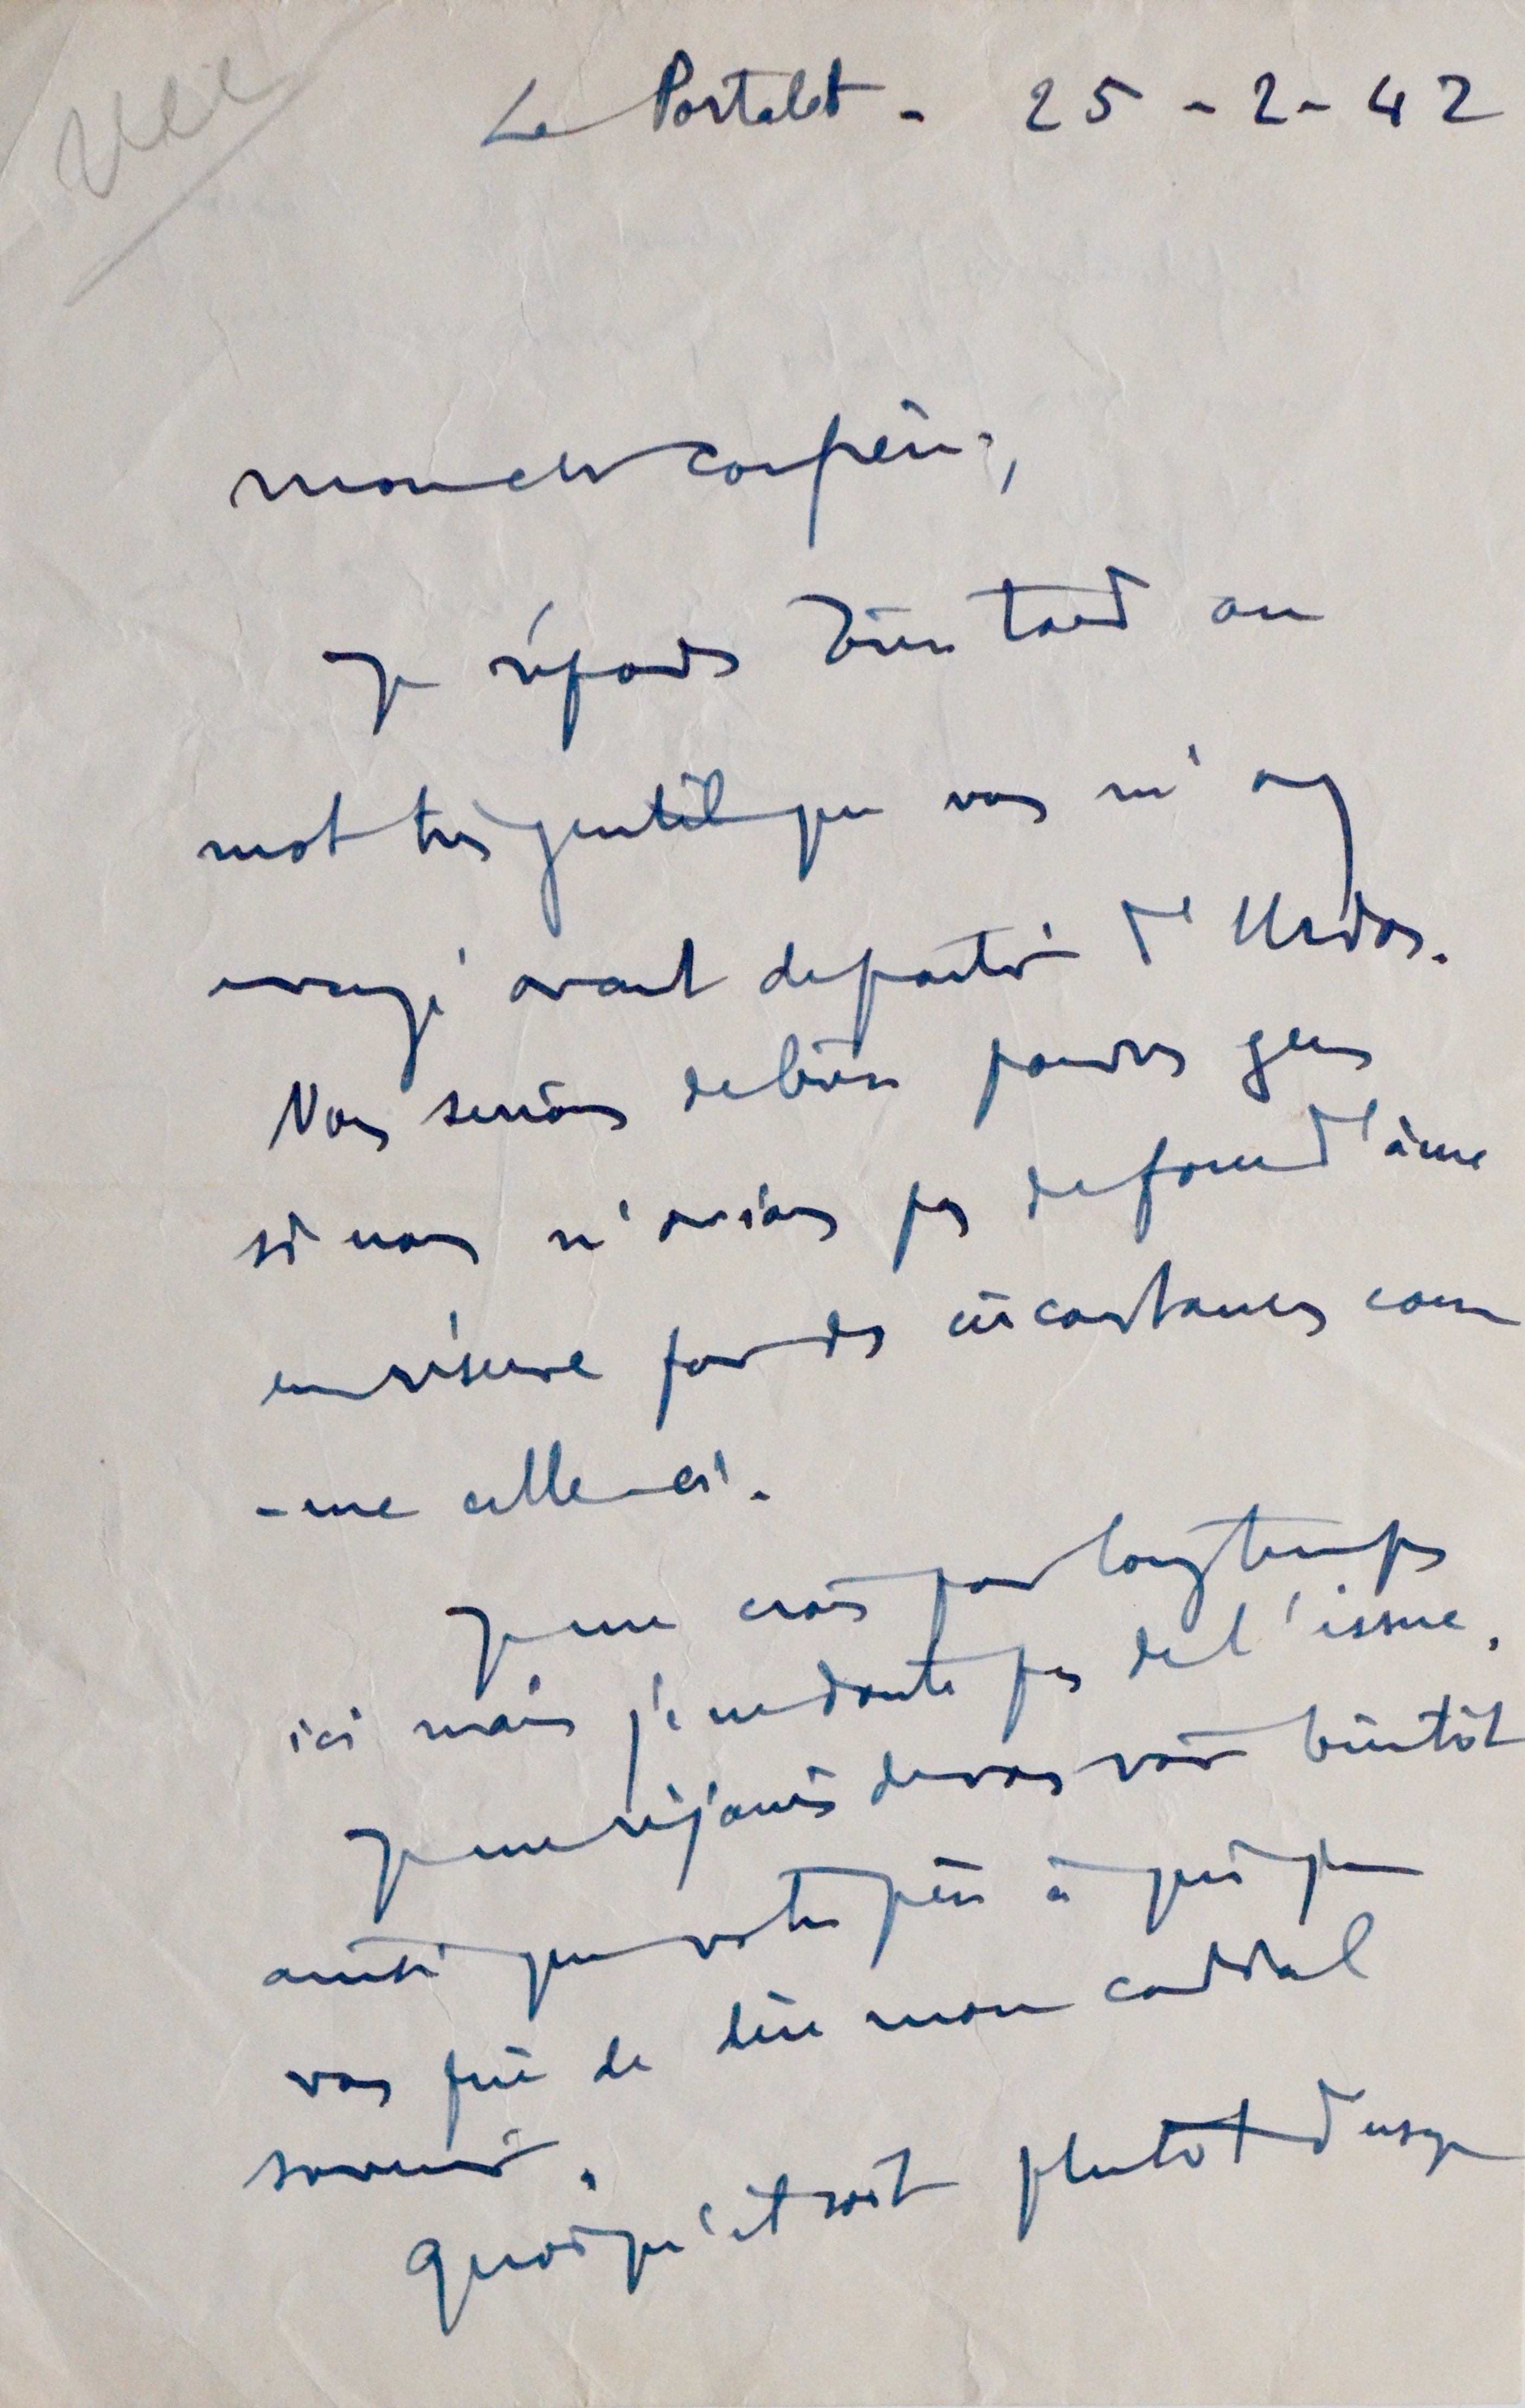 Le Portalet - 25-2-42
Mon cher confrère,
Je réponds bien tard au
mot très gentil que vous m'avez
envoyé avant de partir d'Urdos.
Nous serions de bien pauvres gens
si nous n'avions pas de force d'âme
en réserve pour des circonstances com
-me celle-ci.
Je me crois pour longtemps
ici mais je ne doute pas de l'issue.
Je me réjouis de vous voir bientôt
ainsi que votre père à qui je
vous prie de dire mon cordial
souvenir.
Quoiqu'il soit plutôt d'usage